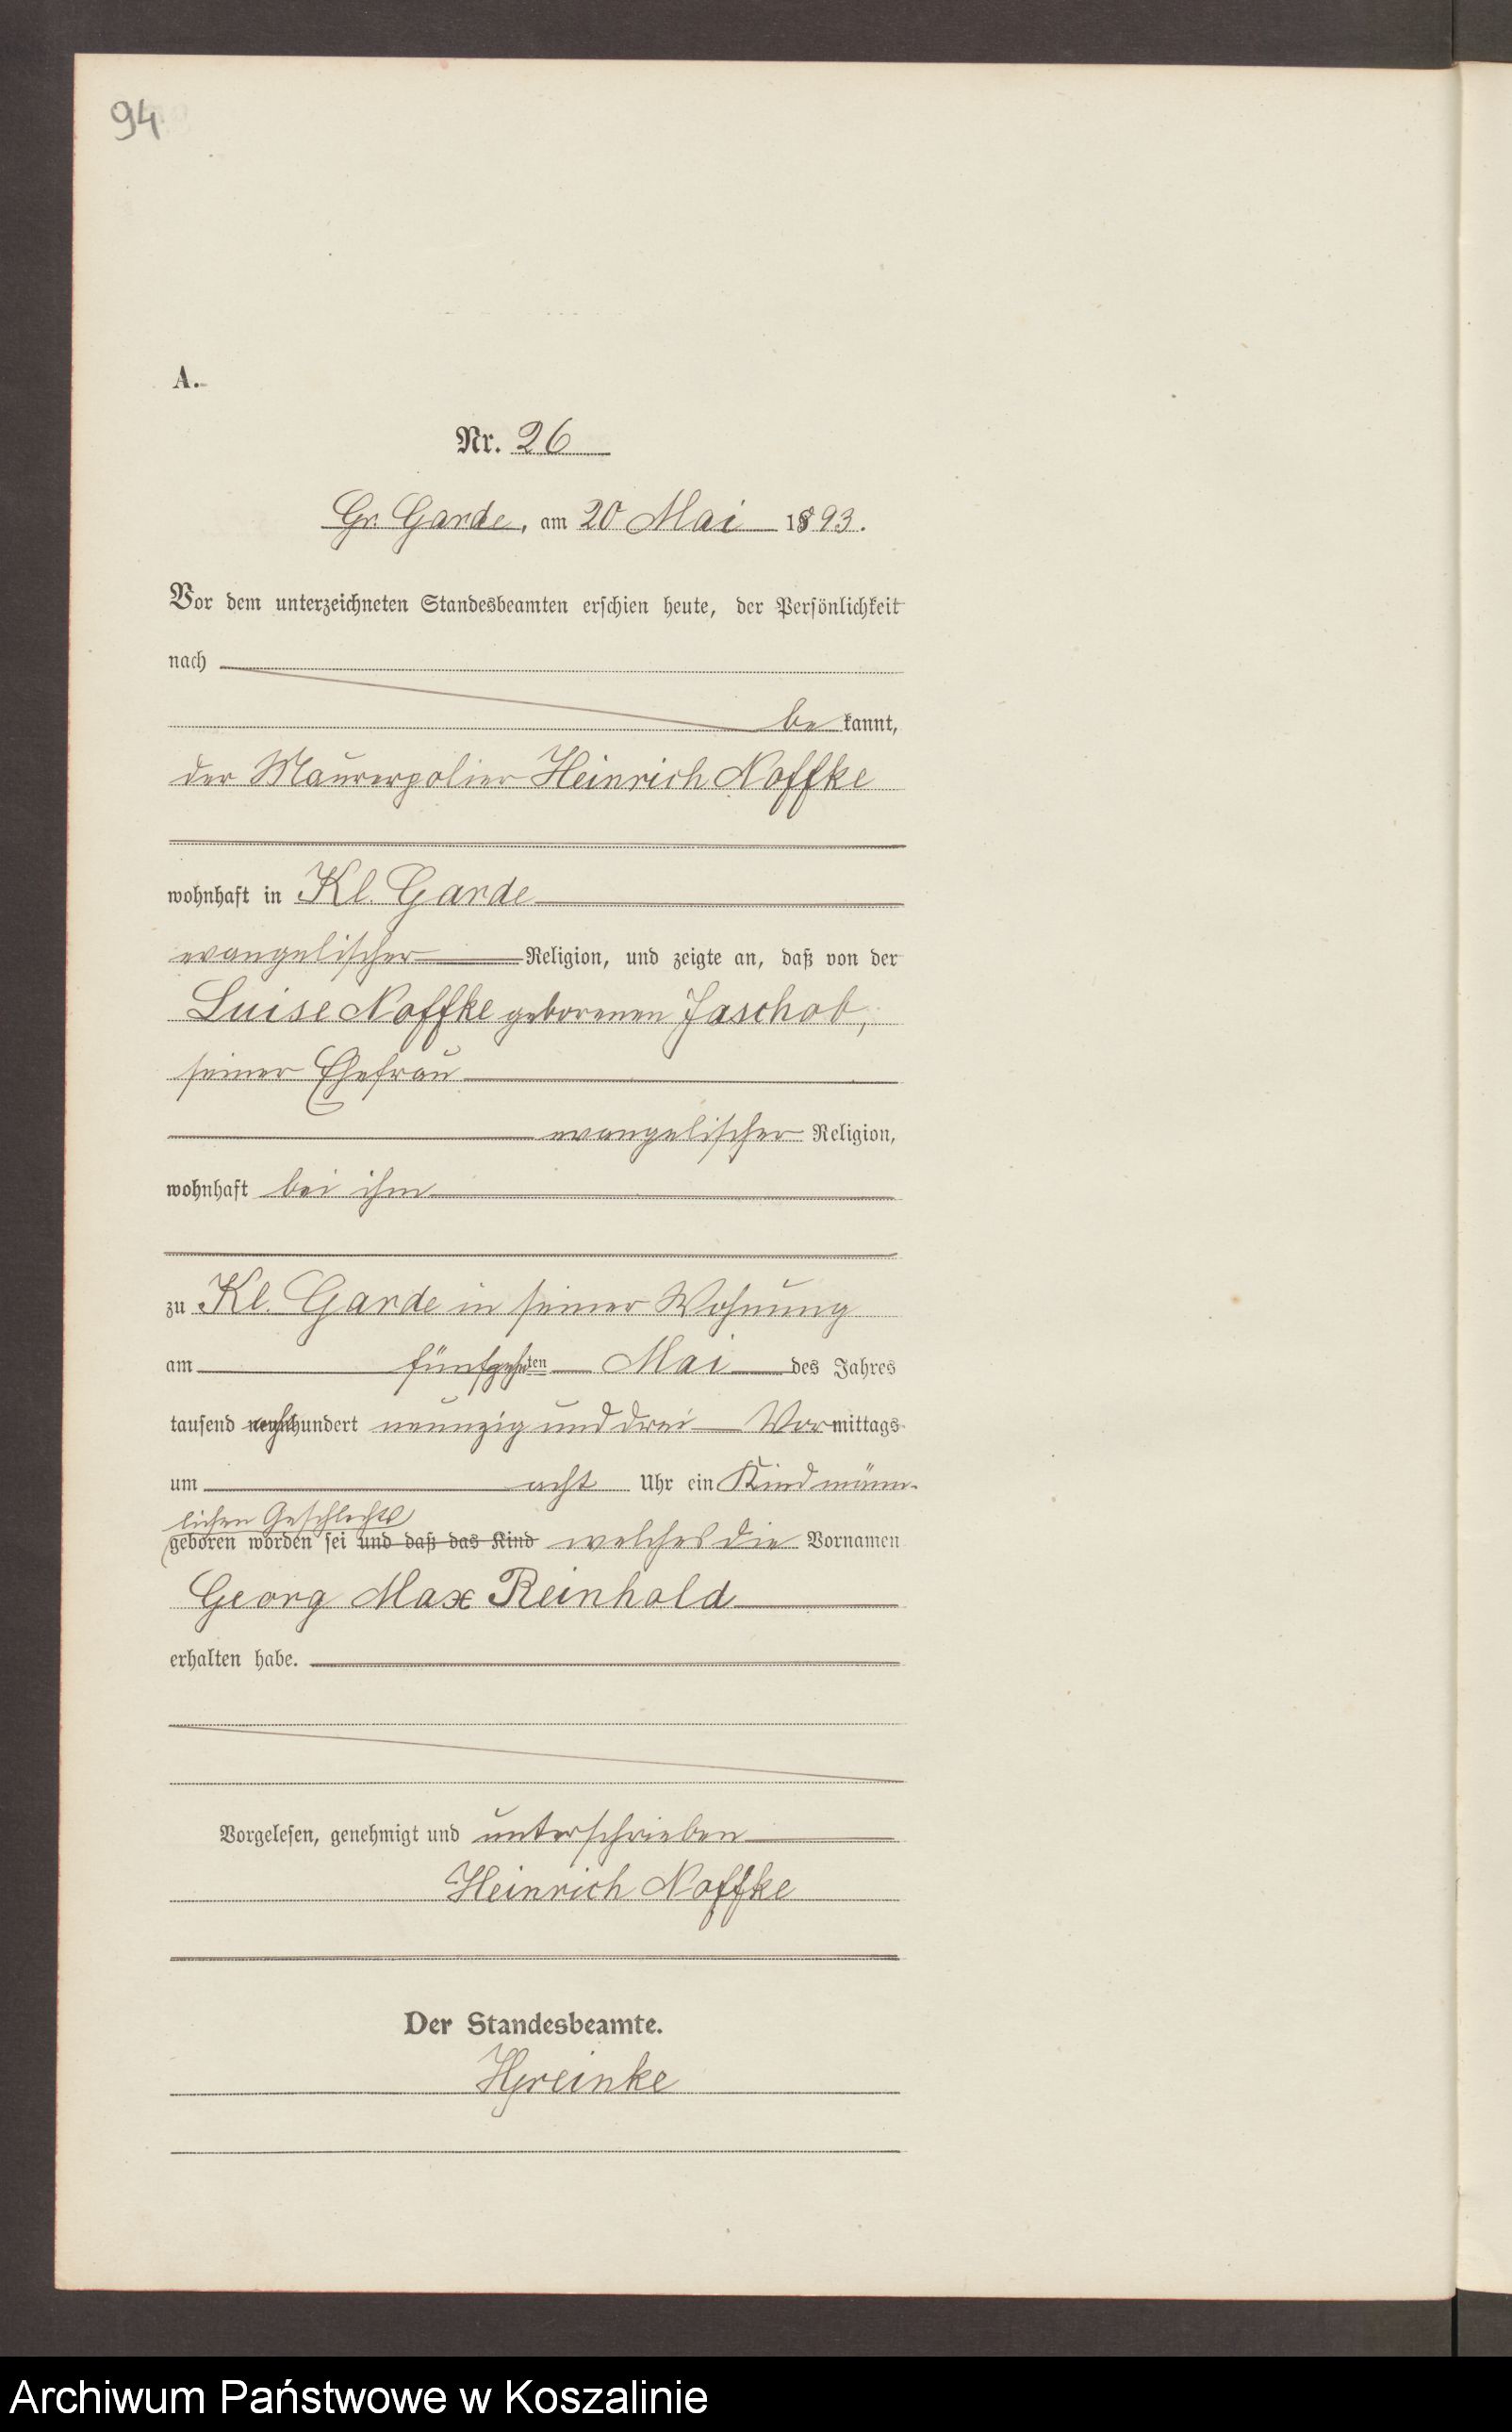 94
A.
Nr. 26
Gr. Garde, am 20 Mai 1893.
Vor dem unterzeichneten Standesbeamten erschien heute, der Persönlichkeit
nach
be kannt,
der Maurerpolier Heinrich Noffke
wohnhaft in Kl. Garde
evangelischer Religion, und zeigte an, daß von der
Luise Noffke geborenen Jaschob,
seiner Ehefrau
evangelischer Religion,
wohnhaft bei ihm
zu Kl. Garde in seiner Wohnung
am fünfzehnten Mai des Jahres
tausend achthundert neunzig und drei Vormittags
um acht Uhr ein Kind männ-
lichen Geschlechts
geboren worden sei und daß das Kind welches die Vornamen
Georg Max Reinhold
erhalten habe.
Vorgelesen, genehmigt und unterschrieben
Heinrich Noffke
Der Standesbeamte.
Archiwum Państwowe w Koszalinie